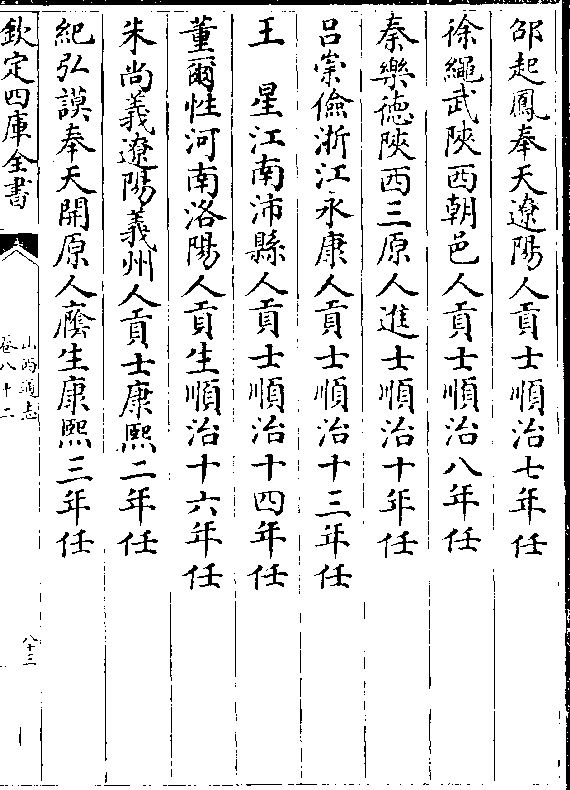 邵起鳳奉天遼陽人貢士順治七年任
徐繩武陝西朝邑人貢士順治八年任
秦樂德陝西三原人進士順治十年任
呂崇儉浙江永康人貢士順治十三年任
王　星江南沛縣人貢士順治十四年任
董爾性河南洛陽人貢生順治十六年任
朱尚義遼陽義州人貢士康熙二年任
紀弘謨奉天開原人廕生康熙三年任
欽定四庫全書
山西通志
卷八十二
八十三